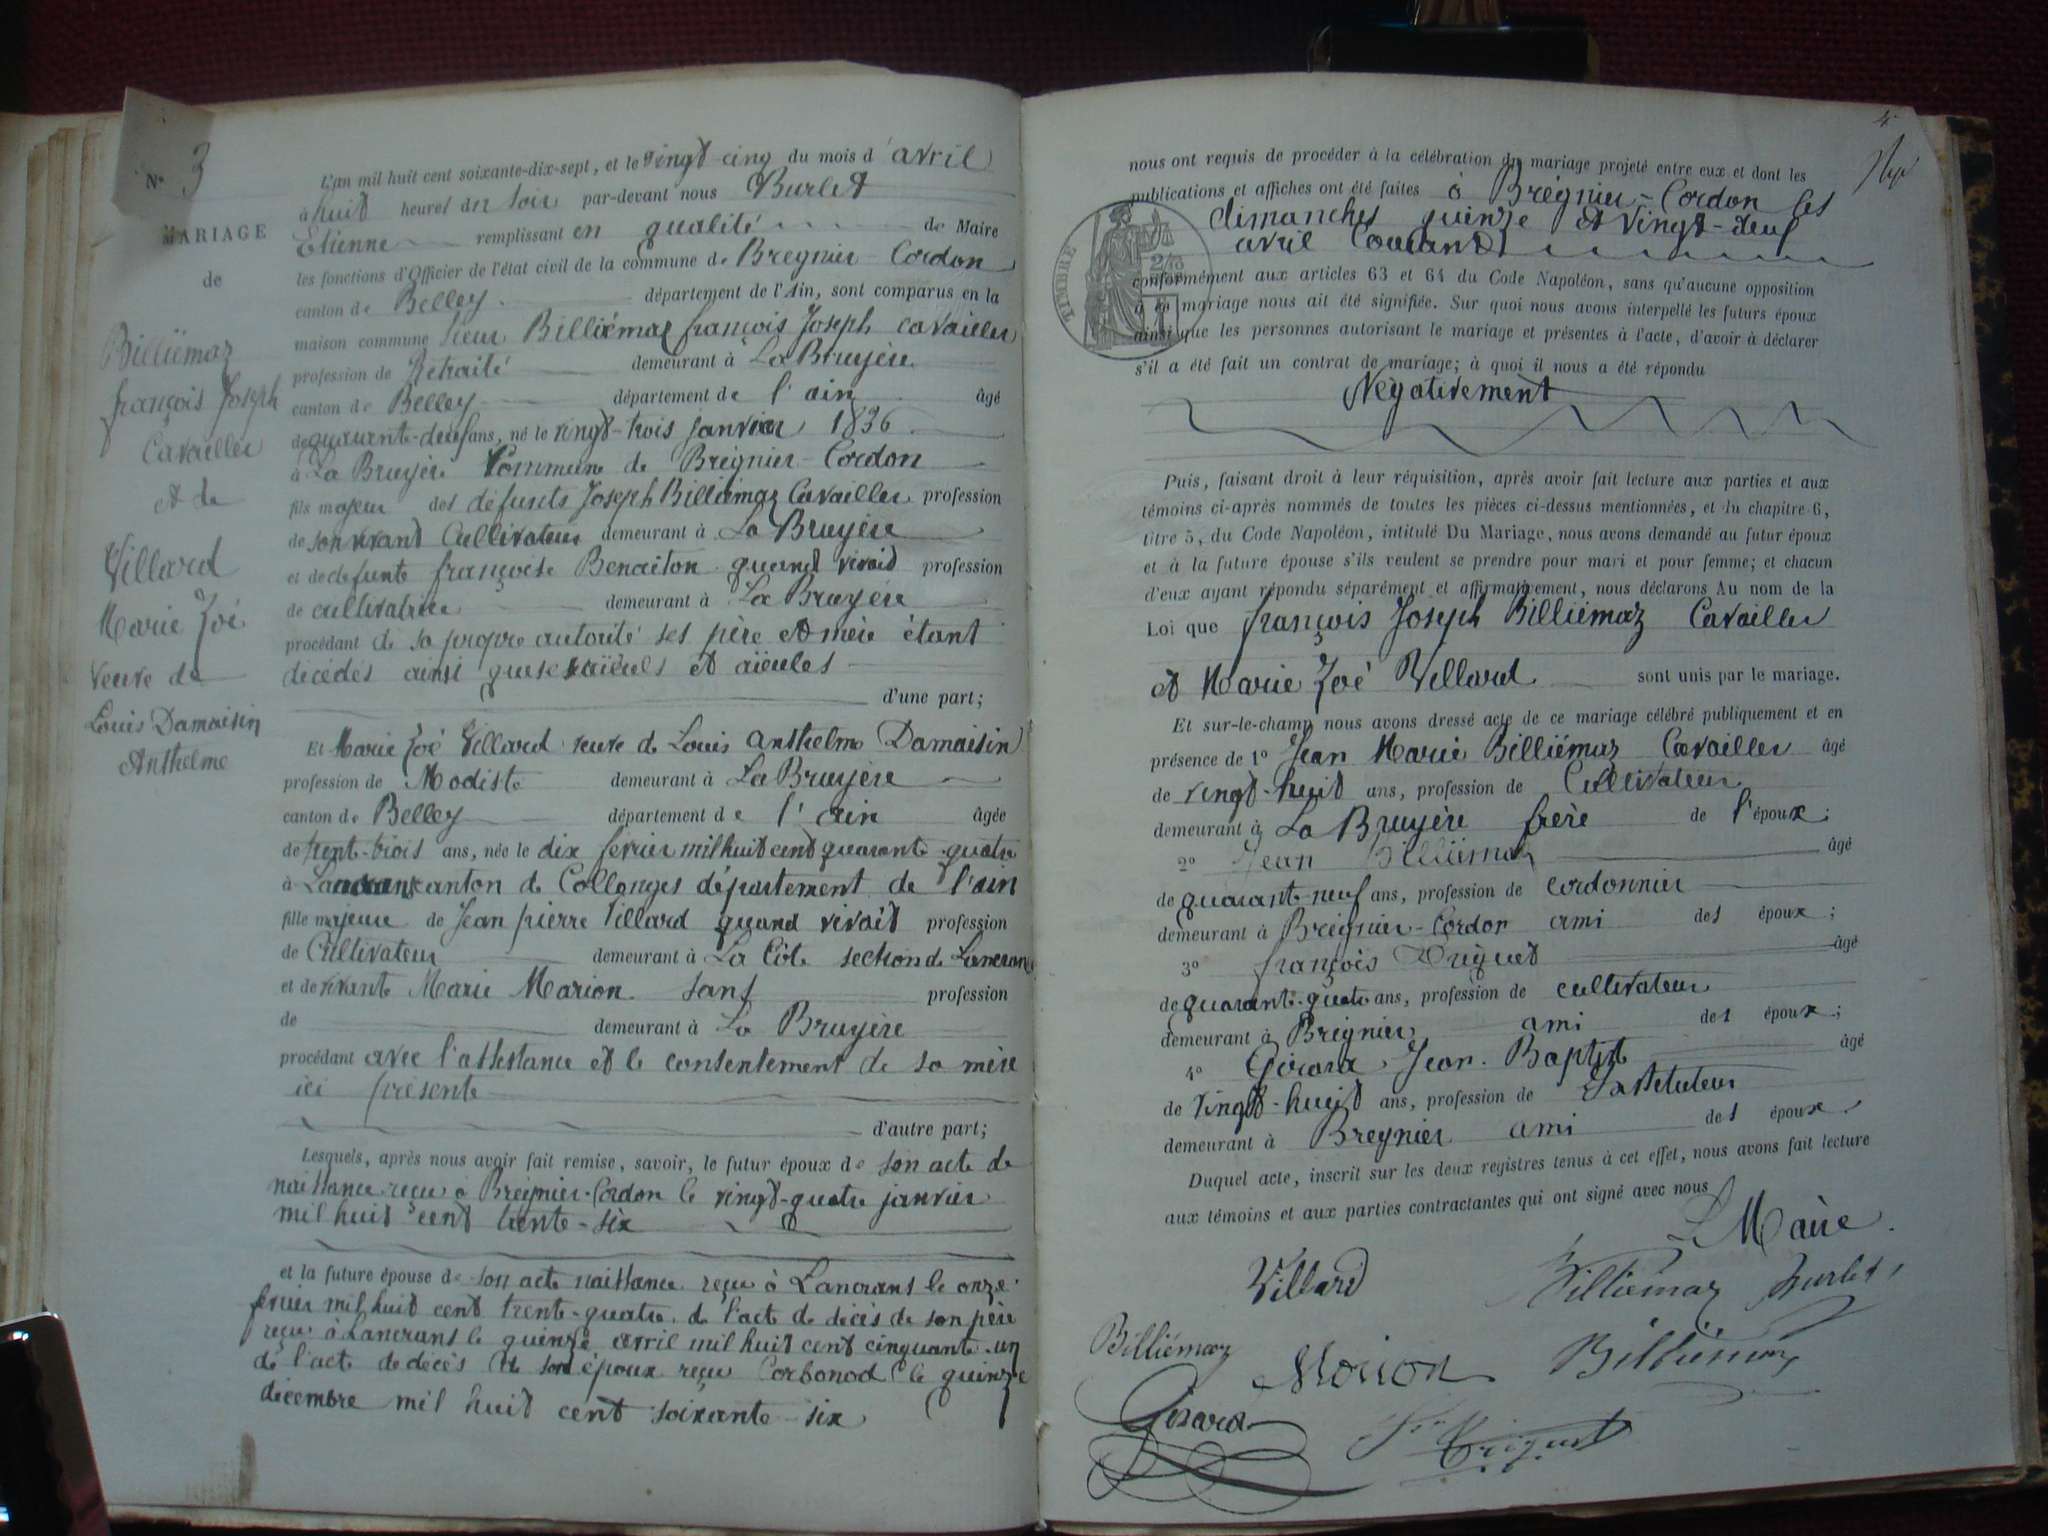 N° 3
MARIAGE
de
Billiémaz
françois Joseph
Cavailler
et de
Villard
Marie Zoé
veuve de
Louis Damaisin
Anthelme
L'an mil huit cent soixante-dix-sept, et le vingt-cinq du mois d'avril
à huit heures du soir par-devant nous Burlet
Etienne remplissant en qualité de Maire
les fonctions d'Officier de l'état civil de la commune de Bregnier-Cordon
canton de Belley département de l'Ain, sont comparus en la
maison commune sieur Billiémaz françois Joseph Cavailler
profession de Retraité demeurant à La Bruyère
canton de Belley département de l'ain âgé
de quarante-deux ans, né le vingt-trois janvier 1836
à La Bruyère Commune de Brégnier-Cordon
fils majeur des défunts Joseph Billiémaz Cavailler profession
de son vivant Cultivateur demeurant à La Bruyère
et de défunte françoise Benaiton quand vivait profession
de cultivatrice demeurant à La Bruyère
procédant de sa propre autorité ses père et mère étant
décédés ainsi que ses aïeuls et aïeules
d'une part;
Et Marie Zoé Villard veuve de Louis Anthelme Damaisin
profession de Modiste demeurant à La Bruyère
canton de Belley département de l'ain âgée
de trent-trois ans, née le dix février mil huit cent quarante-quatre
à Lancrans canton de Collonges département de l'ain
fille majeure de Jean pierre Villard quand vivait profession
de Cultivateur demeurant à La Côte section de Lancrans
et de vivante Marie Marion sans profession
de demeurant à La Bruyère
procédant avec l'assistance et le consentement de sa mère
ici présente
d'autre part;
Lesquels, après nous avoir fait remise, savoir, le futur époux de son acte de
naissance reçu à Brégnier-Cordon le vingt-quatre janvier
mil huit cent trente-six
et la future épouse de son acte naissance reçu à Lancrans le onze
février mil huit cent trente-quatre, de l'acte de décès de son père
reçu à Lancrans le quinze avril mil huit cent cinquante-un
de l'acte de décès de son époux reçu Corbonod le quinze
décembre mil huit cent soixante-six
4
nous ont requis de procéder à la célébration du mariage projeté entre eux et dont les
publications et affiches ont été faites à Brégnier-Cordon les
dimanches quinze et vingt-deux
avril Courant
TIMBRE
conformément aux articles 63 et 64 du Code Napoléon, sans qu'aucune opposition
à ce mariage nous ait été signifiée. Sur quoi nous avons interpellé les futurs époux
ainsi que les personnes autorisant le mariage et présentes à l'acte, d'avoir à déclarer
s'il a été fait un contrat de mariage; à quoi il nous a été répondu
Négativement
Puis, faisant droit à leur réquisition, après avoir fait lecture aux parties et aux
témoins ci-après nommés de toutes les pièces ci-dessus mentionnées, et du chapitre 6,
titre 5, du Code Napoléon, intitulé Du Mariage, nous avons demandé au futur époux
et à la future épouse s'ils veulent se prendre pour mari et pour femme; et chacun
d'eux ayant répondu séparément et affirmativement, nous déclarons Au nom de la
Loi que françois Joseph Billiémaz Cavailler
et Marie Zoé Villard sont unis par le mariage.
Et sur-le-champ nous avons dressé acte de ce mariage célébré publiquement et en
présence de 1° Jean Marie Billiémaz Cavailler âgé
de vingt-huit ans, profession de Cultivateur
demeurant à La Bruyère frère de l'époux;
2° Jean Billiémaz âgé
de quarante-neuf ans, profession de cordonnier
demeurant à Brégnier-Cordon ami des époux;
3° françois Triquet âgé
de quarante-quatre ans, profession de cultivateur
demeurant à Brégnier ami des époux;
4° Girard Jean-Baptiste âgé
de vingt-huit ans, profession de Instituteur
demeurant à Bregnier ami des époux.
Duquel acte, inscrit sur les deux registres tenus à cet effet, nous avons fait lecture
aux témoins et aux parties contractantes qui ont signé avec nous
Le Maire
Villard Billiémaz Burlet
Billiémaz Marion Billiémaz
Girard Triquet